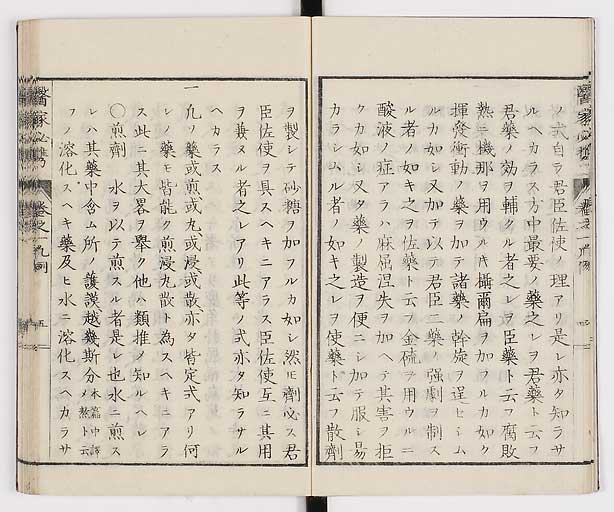 ノ式自ラ君臣佐使ノ理アリ是レ亦タ知ラサ
ルヘカラス方中最要ノ藥之レヲ君藥ト云フ
君藥ノ効ヲ輔クル者之レヲ臣藥ト云フ腐敗
熱ニ機那ヲ用ウル片攝爾扁ヲ加フルカ如ク
揮發衝動ノ藥ヲ加テ諸藥ノ幹旋ヲ逞セシム
ルカ如シ又加テ以テ君臣二藥ノ強劇ヲ制ス
ル者ノ如キ之ヲ佐藥ト云フ金硫ヲ用ウルニ
酸液ノ症アラハ麻屈涅失ヲ加ヘテ其害ヲ拒
クカ如シ又タ藥ノ製造ヲ便ニシ加テ服シ易
カラシムル者ノ如キ之レヲ使藥ト云フ散劑
ヲ製シテ砂糖ヲ加フルカ如シ然𪜈劑必ス君
臣佐使ヲ具スヘキニアラス臣佐使互ニ其用
ヲ兼ヌル者之レアリ此等ノ式亦タ知ラサル
ヘカラス
一凡ソ藥或煎或丸或浸或散亦タ皆定式アリ何
レノ藥モ皆能ク煎浸丸散ト為スヘキニアラ
ス此ニ其大畧ヲ擧ク他ハ類推ノ知ルヘシ
〇煎劑 水ヲ以テ煎スル者是レ也水ニ煎ス
レハ其藥中含ム所ノ護謨越幾斯分
フノ溶化スヘキ藥及ヒ水ニ溶化スヘカラサ
醫家必携 卷之一 凡例 五